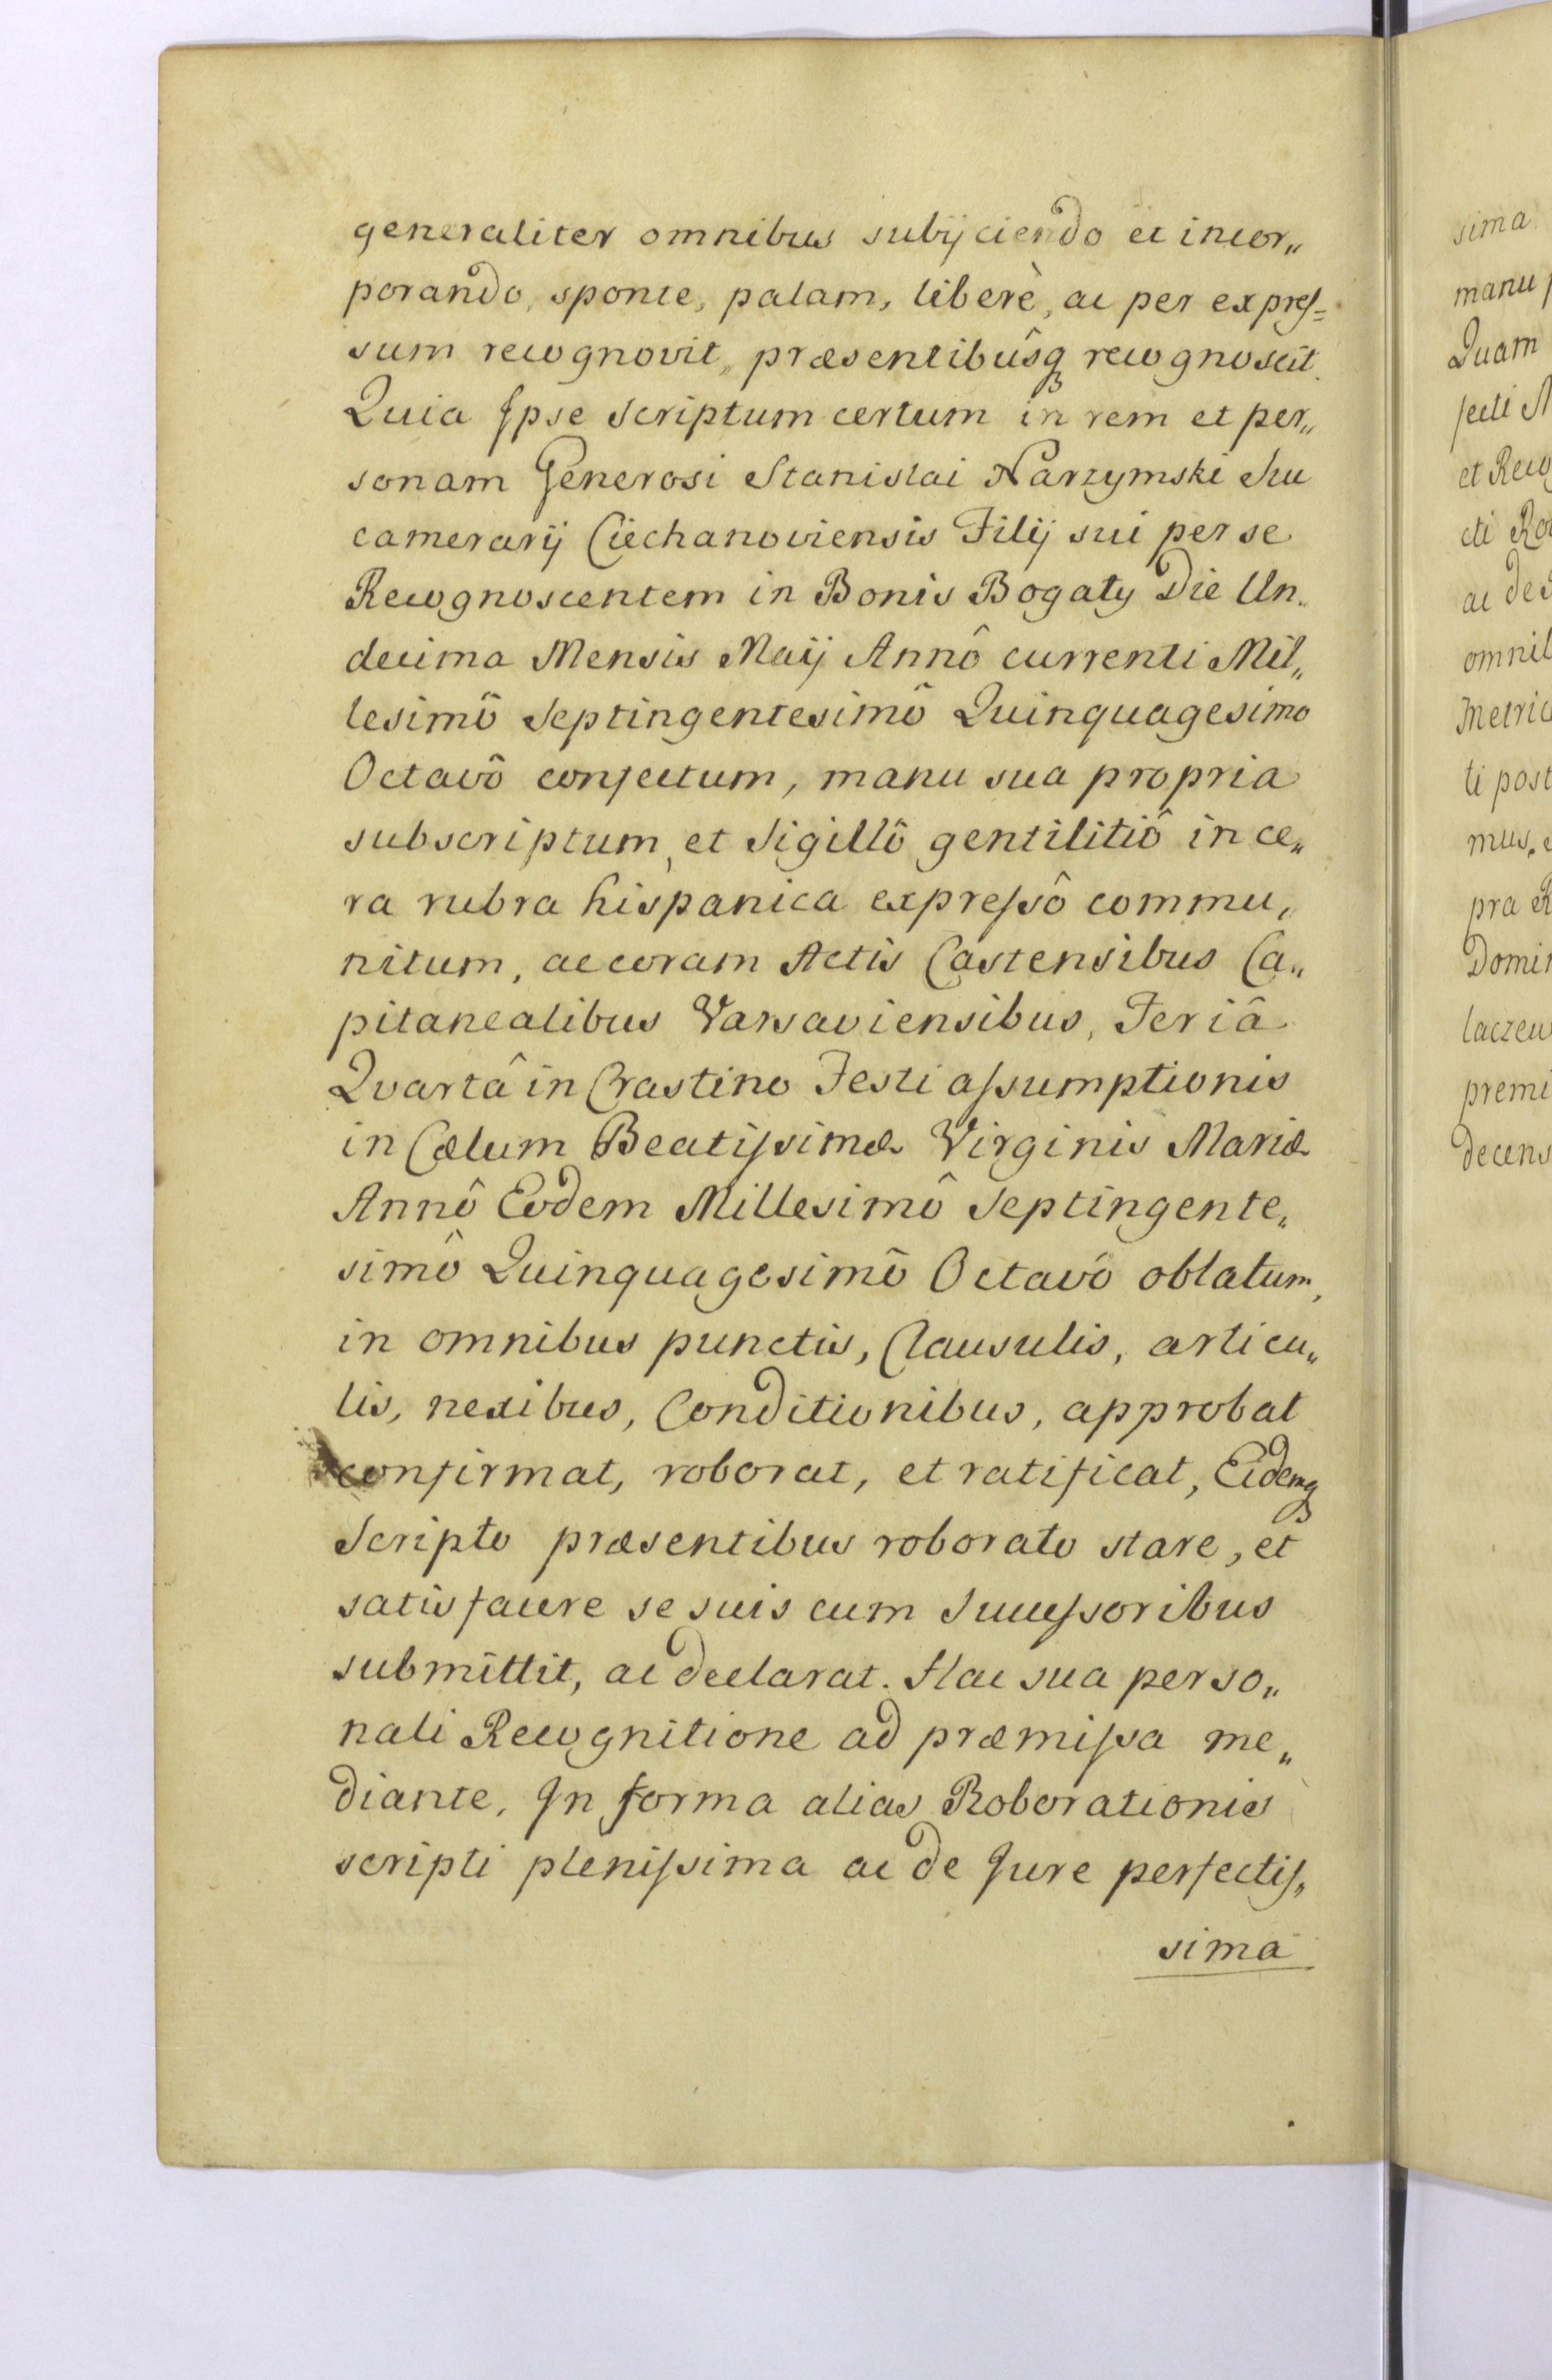 generaliter omnibus subijciendo et incor„
porando, sponte, palam, liberè, ac per expres=
sum recognovit, præsentibûsq recognoscit.
Quia Ipse Scriptum certum in rem et per„
sonam Generosi Stanislai Narzymski Suc
camerarij Ciechanoviensis Filij sui per se
Recognoscentem in Bonis Bogaty Die Un„
decima Mensis Maij Annô currenti Mil„
lesimô Septingentesimô Quinquagesimo
Octavô confectum, manu sua propria
subscriptum, et Sigillô gentilitiô in ce„
ra rubra hispanica expressô commu„
nitum, ac coram Actis Castrensibus Ca„
pitanealibus Varsaviensibus, Feriâ
Qvartâ in Crastino Festi assumptionis
in Cælum Beatissimæ Virginis Mariæ
Annô Eodem Millesimô Septingente„
simô Quinquagesimô Octavô oblatum,
in omnibus punctis, Clausulis, articu„
lis, nexibus, Conditionibus, approbat
confirmat, roborat, et ratificat, Eidemq
Scripto præsentibus roborato stare, et
satisfacere se suis cum Successoribus
submittit, ac declarat. Hac sua perso„
nali Recognitione ad præmissa me„
diante, In forma alias Roborationis
scripti plenissima ac de Jure perfectis„
sima
sima
manu
Quam
fecti
et Recog
cti
ac de
omnib
Metric
ti post
mus.
pra
Domin
laczew
premi
decens